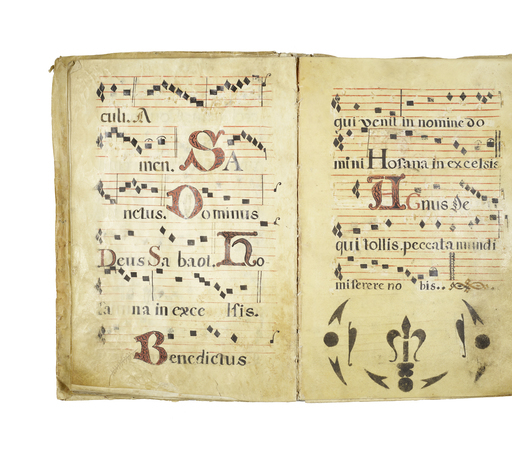 culi..A
men. SA
nctus. Dominus
Deus Sa baot. Ho
na in exce lsis.
Benedictus
qui venit in nomine do
mini Hosana in excelsis
AGnus De
qui tollis peccata mundi
miserere no bis..